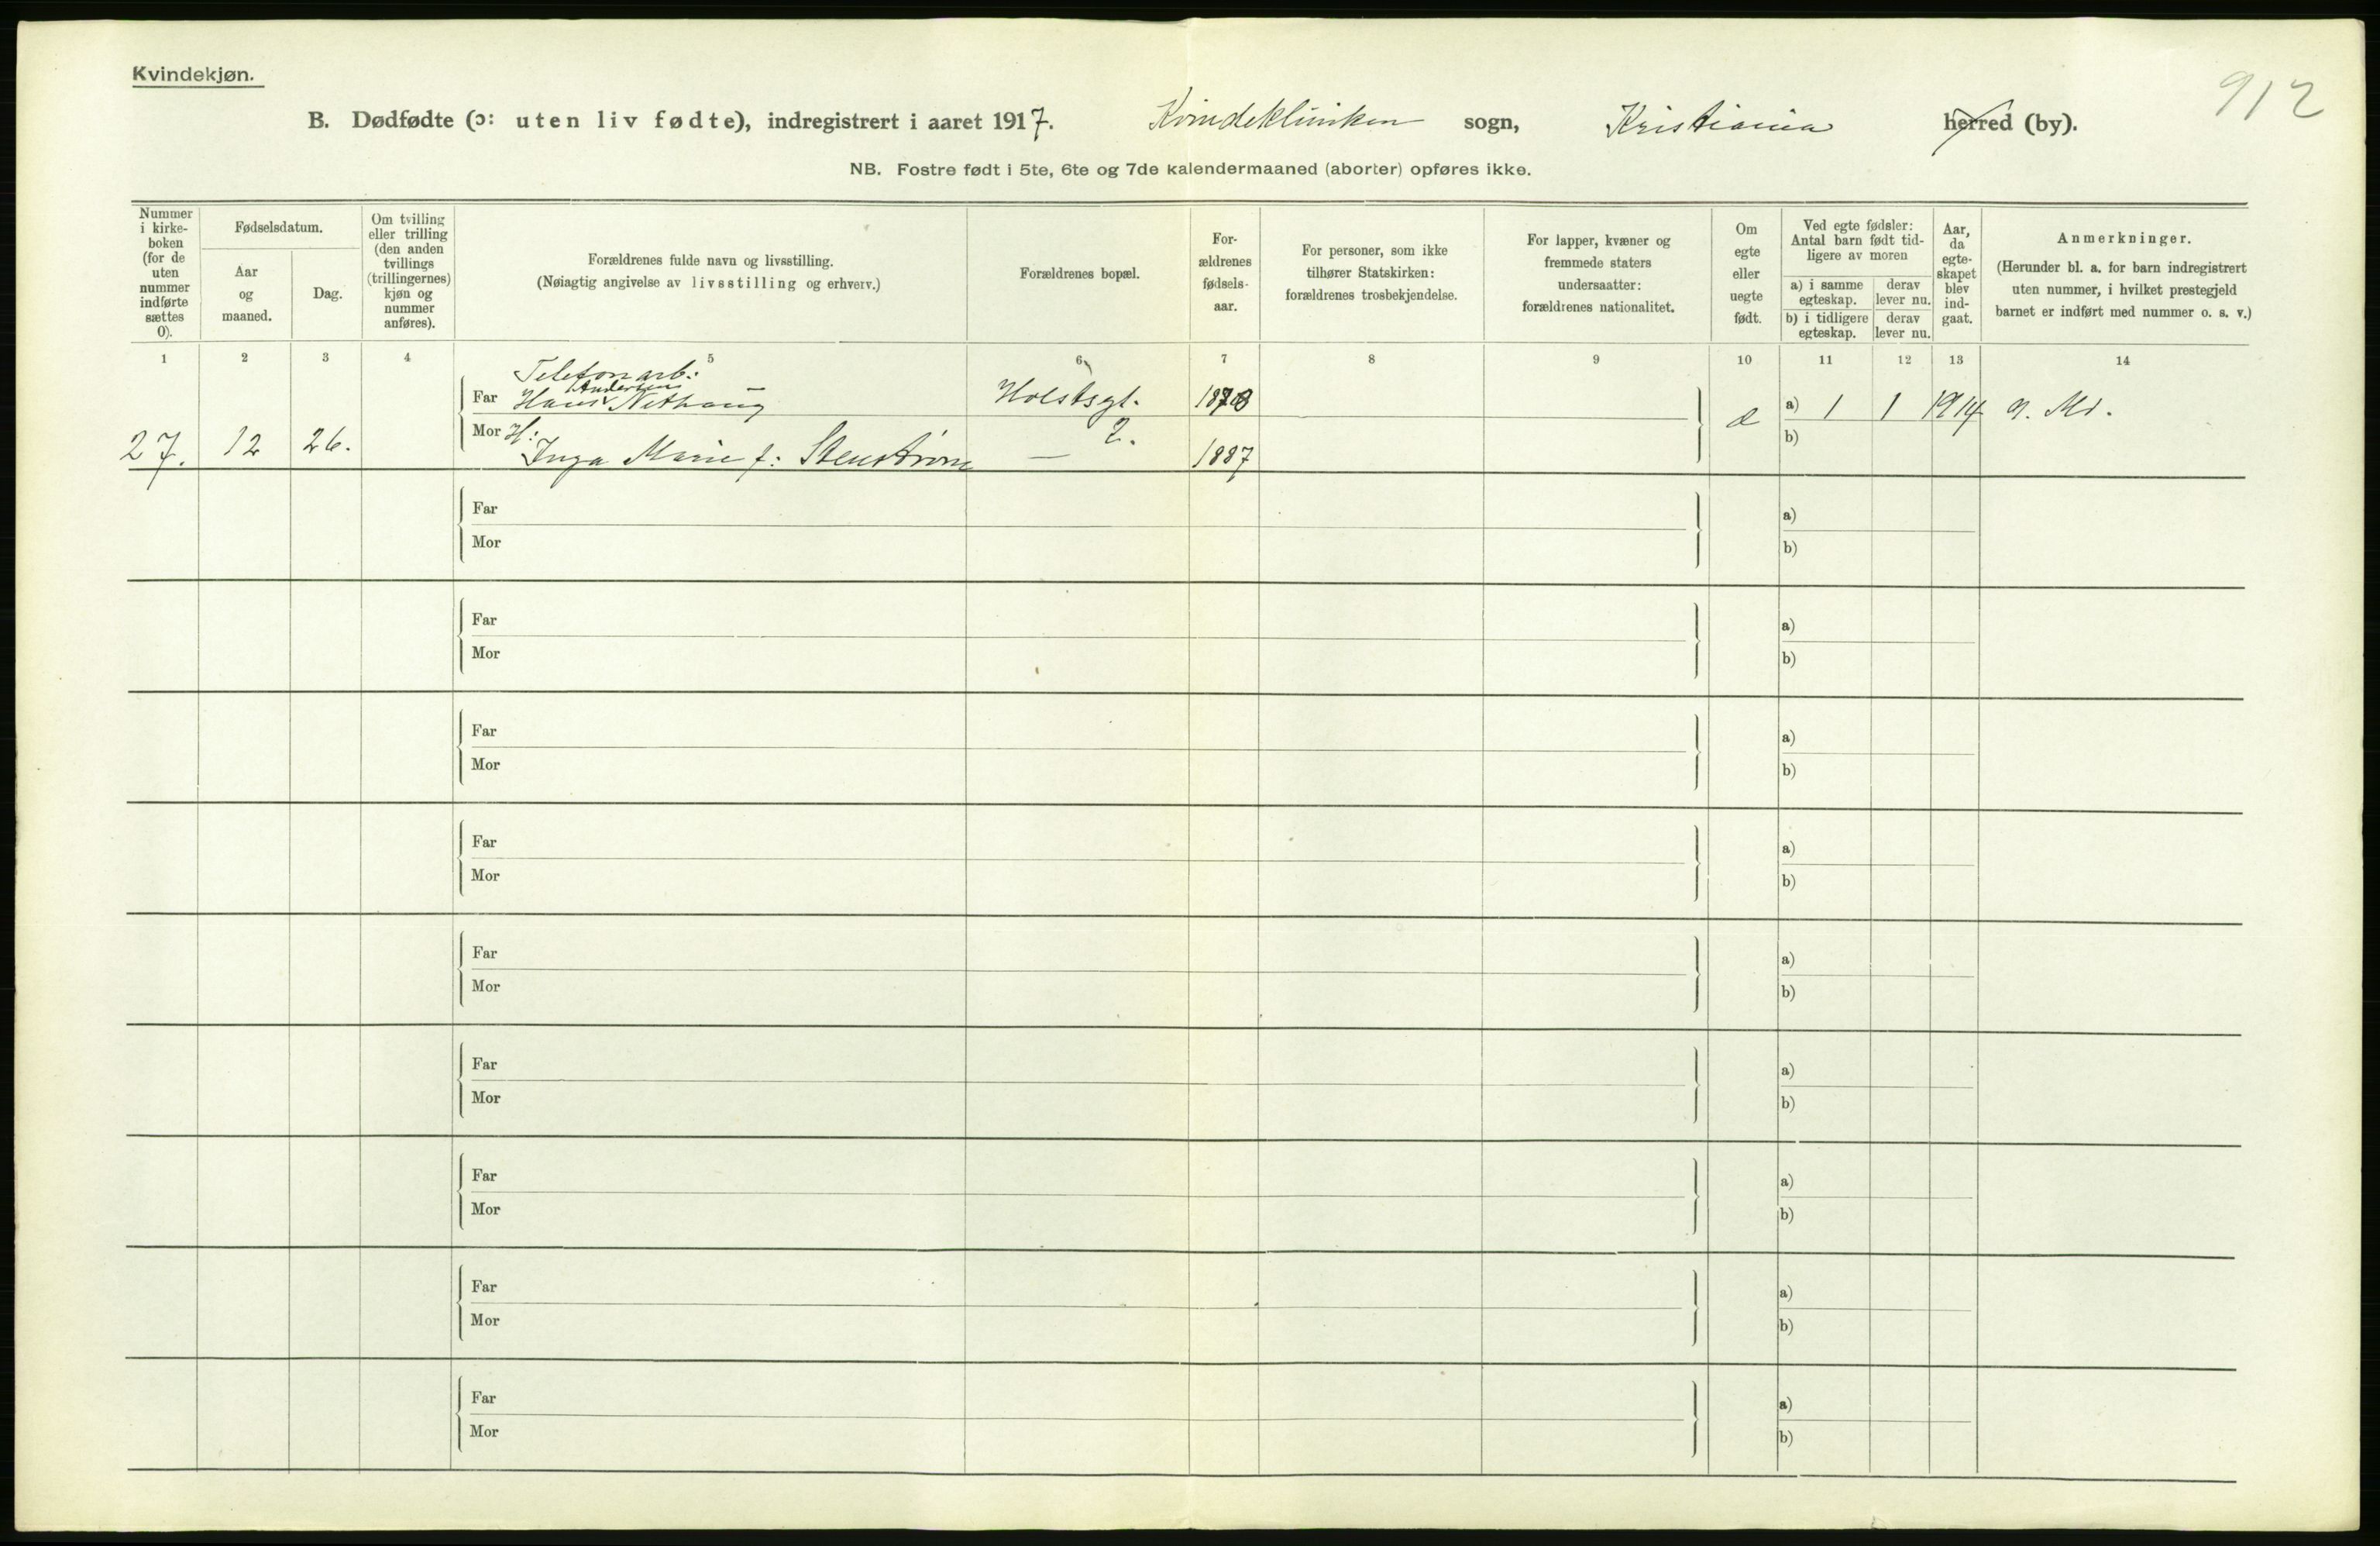 Kvindekjøn.
912
B. Dødfødte (ɔ: uten liv fødte), indregistrert i aaret 1917. Kvindekliniken sogn, Kristiania herred (by).
NB. Fostre født i 5te, 6te og 7de kalendermaaned (aborter) opføres ikke.
Nummer
i kirke-
boken
(for de
uten
nummer
indførte
sættes
0).
Fødselsdatum.
Aar
og
maaned.
Dag.
Om tvilling
eller trilling
(den anden
tvillings
(trillingernes)
kjøn og
nummer
anføres).
Forældrenes fulde navn og livsstilling.
(Nøiagtig angivelse av livsstilling og erhverv.)
Forældrenes bopæl.
For-
ældrenes
fødsels-
aar.
For personer, som ikke
tilhører Statskirken:
forældrenes trosbekjendelse.
For lapper, kvæner og
fremmede staters
undersaatter:
forældrenes nationalitet.
Om
egte
eller
uegte
født.
Ved egte fødsler:
Antal barn født tid-
ligere av moren
a) i samme
egteskap.
derav
lever nu.
b) i tidligere
egteskap.
derav
lever nu.
Aar,
da
egte-
skapet
blev
ind-
gaat.
Anmerkninger.
(Herunder bl. a. for barn indregistrert
uten nummer, i hvilket prestegjeld
barnet er indført med nummer o. s. v.)
1 2 3 4 5 6 7 8 9 10 11 12 13 14
Telefonarb.
Andersen
Far Hans Holstsgt. 1878 a) 1 1 1914 g. Md.
Mor H: 2. b)
27. 12 26. Inga Marie f. Stenstrøm — 1887
Far a)
Mor b)
Far a)
Mor b)
Far a)
Mor b)
Far a)
Mor b)
Far a)
Mor b)
Far a)
Mor b)
Far a)
Mor b)
Far a)
Mor b)
Far a)
Mor b)